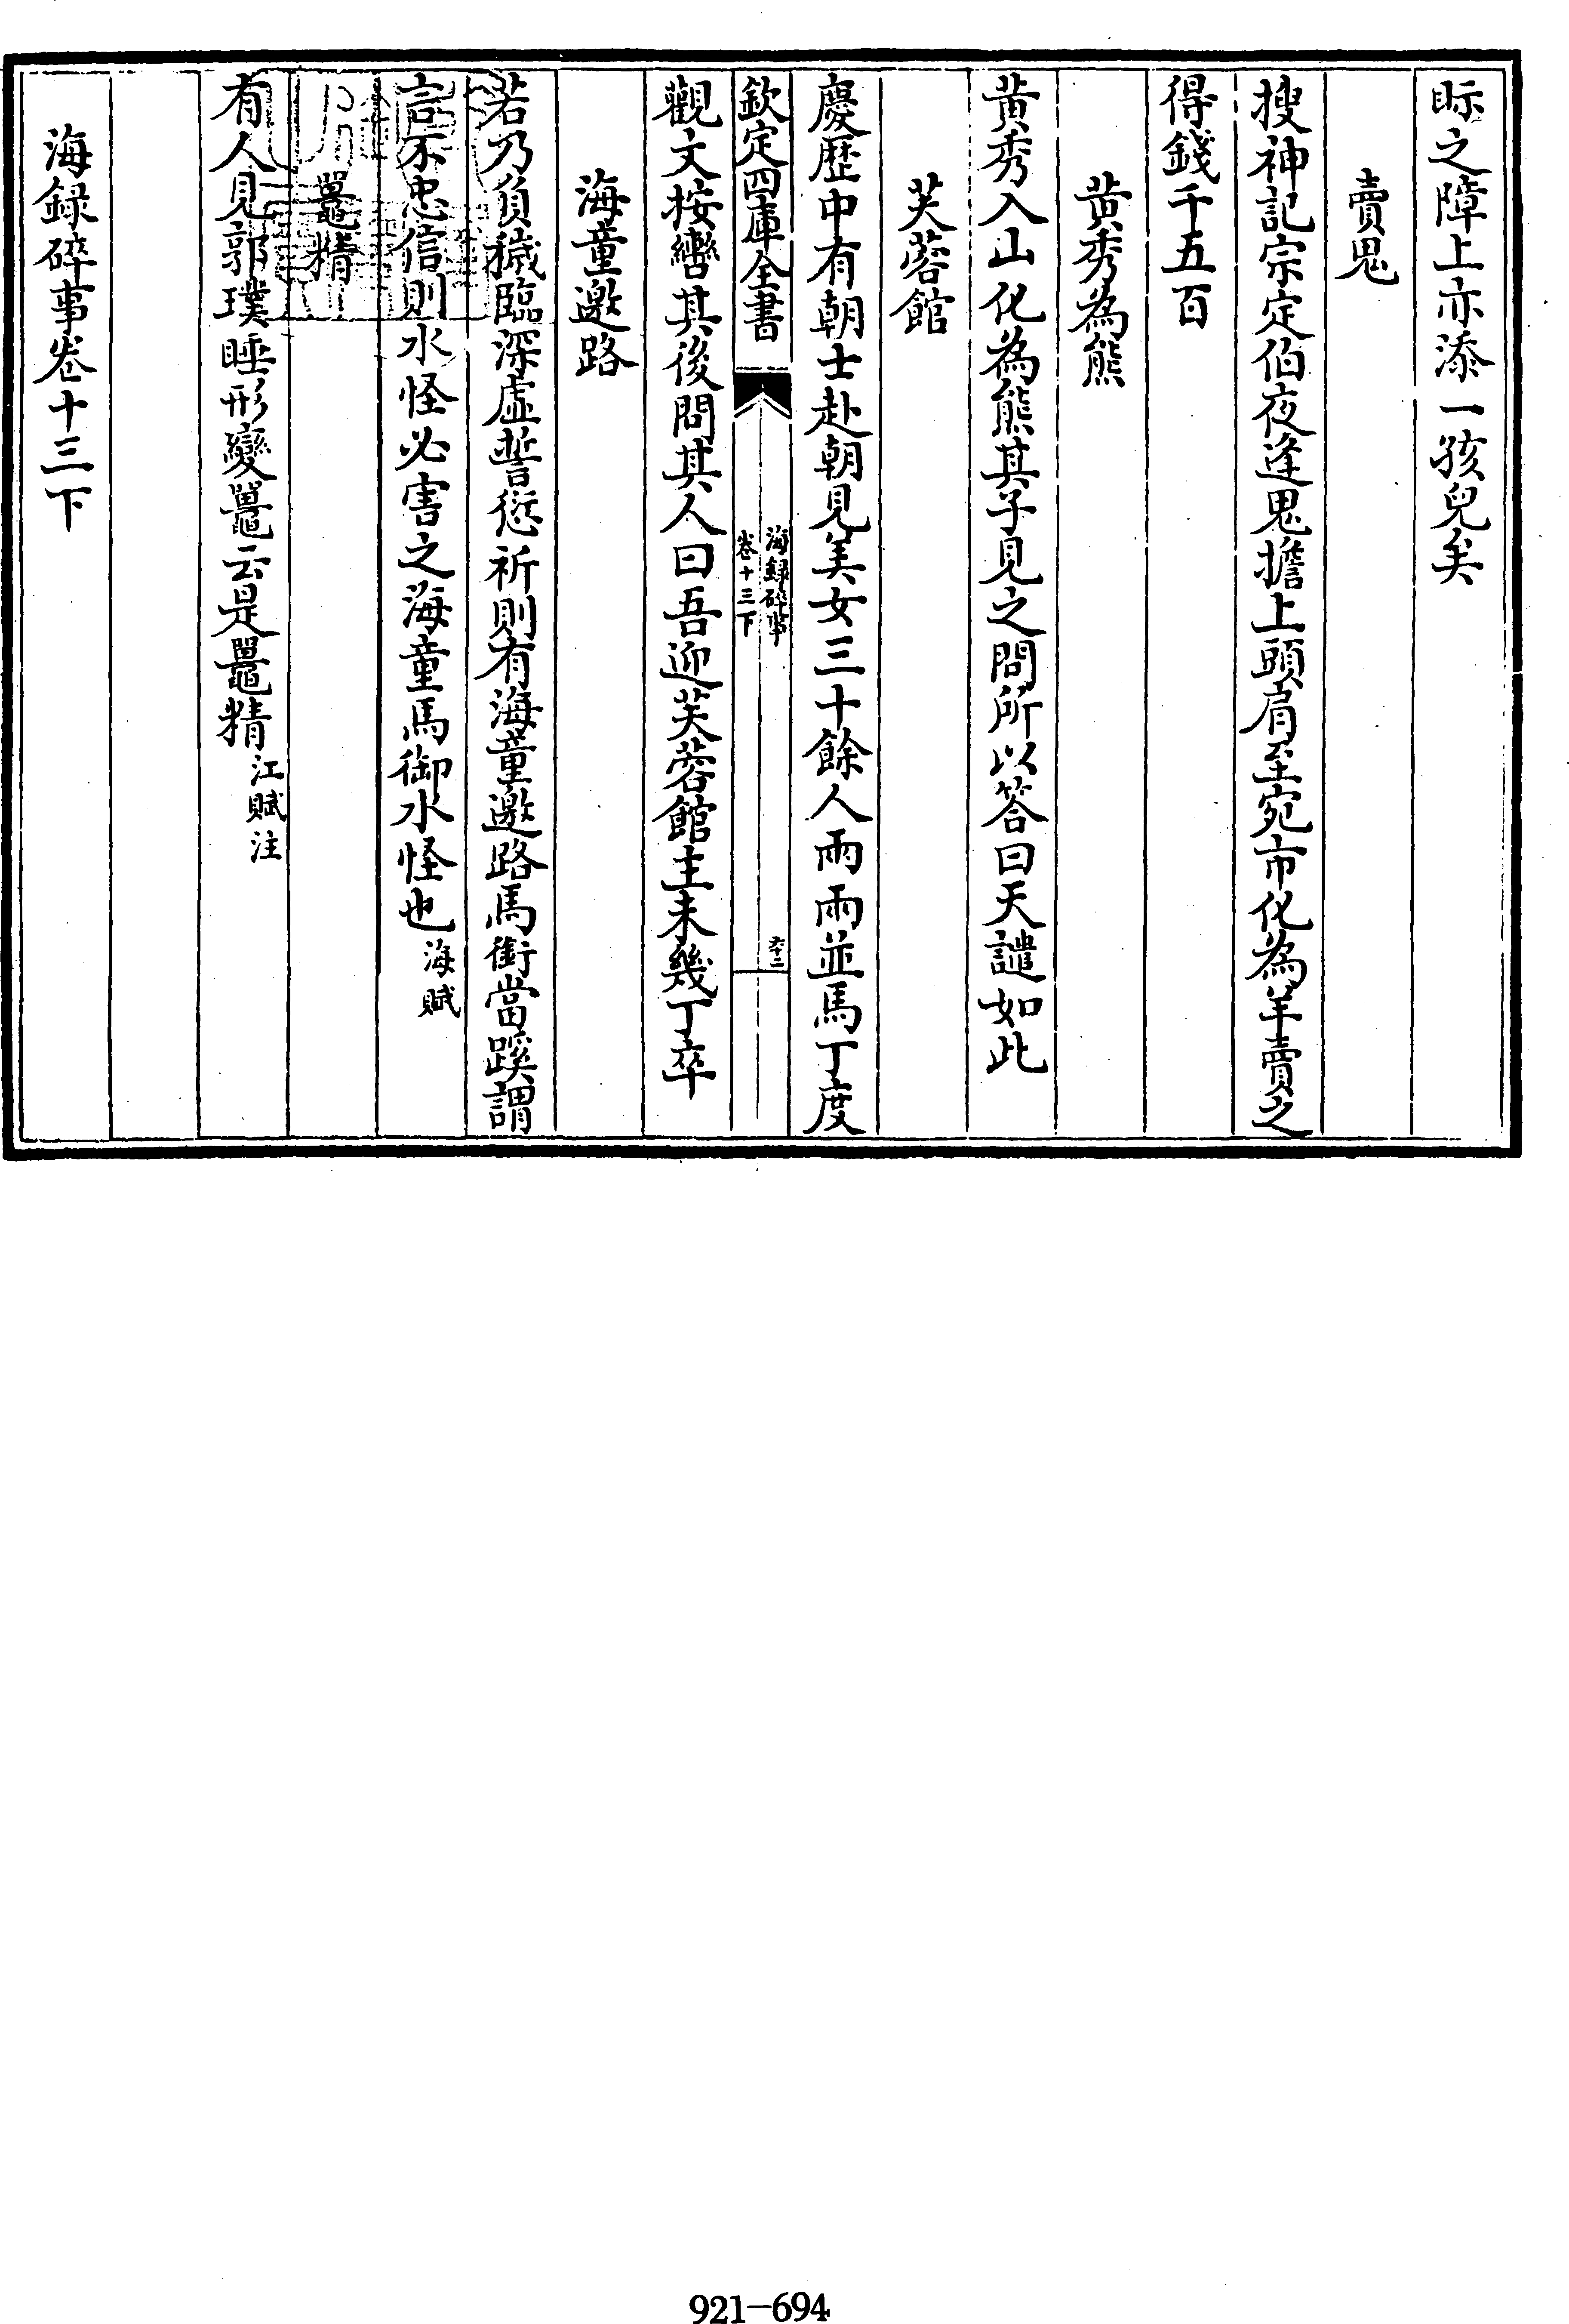 眎之障上亦添一孩兒矣
賣鬼
搜神記宗定伯夜逢鬼擔上頭肩至宛市化為羊賣之
得錢千五百
黄秀為熊
黄秀入山化為熊其子見之問所以答曰天譴如此
芙蓉館
慶歴中有朝士赴朝見美女三十餘人兩兩並馬丁度
欽定四庫全書
海録碎事
卷十三下
六十二
觀文按轡其後問其人曰吾迎芙蓉館主未幾丁卒
海童邀路
若乃負穢臨深虛誓愆祈則有海童邀路馬銜當蹊謂
言不忠信則水怪必害之海童馬御水怪也海賦
鼉精
有人見郭璞睡形變鼉云是鼉精江賦注
海録碎事卷十三下
921-694